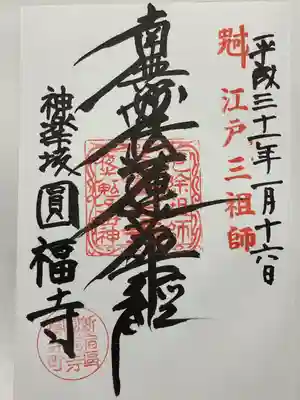 平成三十一年一月十六日
江戸三祖師
南無妙法蓮華経
神楽坂
圓福寺
新宿區